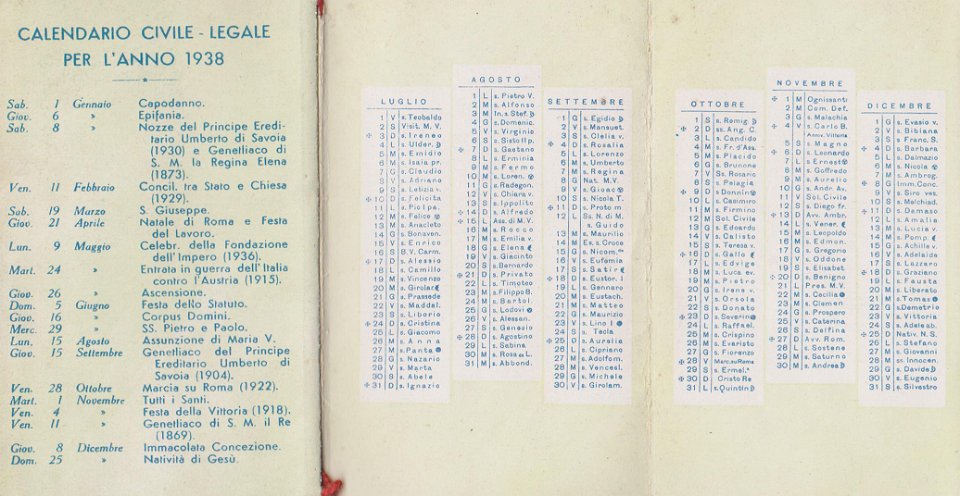 CALENDARIO CIVILE - LEGALE
PER L'ANNO 1938
Sab. 1 Gennaio Capodanno.
Giov. 6 » Epifania.
Sab. 8 » Nozze del Principe Eredi-
tario Umberto di Savoia
(1930) e Genetliaco di
S. M. la Regina Elena
(1873).
Ven. 11 Febbraio Concil. tra Stato e Chiesa
(1929).
Sab. 19 Marzo S. Giuseppe.
Giov. 21 Aprile Natale di Roma e Festa
del Lavoro.
Lun. 9 Maggio Celebr. della Fondazione
dell'Impero (1936).
Mart. 24 » Entrata in guerra dell'Italia
contro l'Austria (1915).
Giov. 26 » Ascensione.
Dom. 5 Giugno Festa dello Statuto.
Giov. 16 » Corpus Domini.
Merc. 29 » SS. Pietro e Paolo.
Lun. 15 Agosto Assunzione di Maria V.
Giov. 15 Settembre Genetliaco del Principe
Ereditario Umberto di
Savoia (1904).
Ven. 28 Ottobre Marcia su Roma (1922).
Mart. 1 Novembre Tutti i Santi.
Ven. 4 » Festa della Vittoria (1918).
Ven. 11 » Genetliaco di S. M. il Re
(1869).
Giov. 8 Dicembre Immacolata Concezione.
Dom. 25 » Natività di Gesù.
LUGLIO
1 V s. Teobaldo
2 S Visit. M. V.
3 D s. Ireneo
4 L s. Ulder.
5 M s. Emidio
6 M s. Isaia pr.
7 G s. Claudio
8 V s. Adriano
9 S s. Letizia v.
10 D s. Felicita
11 L s. Pio I pa.
12 M s. Felice
13 M s. Anacleto
14 G s. Bonaven.
15 V s. Enrico
16 S B. V. Carm.
17 D s. Alessio
18 L s. Camillo
19 M s. Vincenzo
20 M s. Girolam
21 G s. Prassede
22 V s. Maddal.
23 S s. Liborio
24 D s. Cristina
25 L s. Giacomo
26 M s. Anna
27 M s. Panta
28 G s. Nazario
29 V s. Marta
30 S s. Abele
31 D s. Ignazio
AGOSTO
1 L s. Pietro V.
2 M s. Alfonso
3 M In. s. Stef.
4 G s. Domenic.
5 V s. Virginio
6 S s. Sisto II p.
7 D s. Gaetano
8 L s. Erminia
9 M s. Fermo
10 M s. Loren.
11 G s. Radegon.
12 V s. Chiara v.
13 S s. Ippolito
14 D s. Alfredo
15 L Ass. di M. V.
16 M s. Rocco
17 M s. Emilia v.
18 G s. Elena
19 V s. Giacinto
20 S s. Bernardo
21 D s. Privato
22 L s. Timoteo
23 M s. Filippo B.
24 M s. Bartol.
25 G s. Lodovi
26 V s. Alessan.
27 S s. Genesio
28 D s. Agostino
29 L s. Sabina
30 M s. Rosa d. L.
31 M s. Abbond.
SETTEMBRE
1 G s. Egidio
2 V s. Mansuet.
3 S s. Clelia v.
4 D s. Rosalia
5 L s. Lorenzo
6 M s. Umberto
7 M s. Regina
8 G Nat. M. V.
9 V s. Gioac
10 S s. Nicola T.
11 D s. Proto m
12 L Ss. N. di M.
s. Guido
13 M s. Maurilio
14 M Es. s. Croce
15 G s. Nicom.
16 V s. Eufemia
17 S s. Satir
18 D s. Eustor. I
19 L s. Gennaro
20 M s. Eustach.
21 M s. Matteo
22 G s. Maurizio
23 V s. Lino I
24 S s. Tecla
25 D s. Aurelia
26 L s. Cipriano
27 M s. Adolfom.
28 M s. Vencesl.
29 G s. Michele
30 V s. Girolam.
OTTOBRE
1 S s. Remig.
2 D ss. Ang. C.
3 L s. Candido
4 M s. Fr. d'Ass.
5 M s. Placido
6 G s. Brunone
7 V Ss. Rosario
8 S s. Pelagia
9 D s. Donnin
10 L s. Casimiro
11 M s. Firmino
12 M Sol. Civile
13 G s. Edoardo
14 V s. Calisto
15 S s. Teresa v.
16 D s. Gallo
17 L s. Edvige
18 M s. Luca ev.
19 M s. Pietro
20 G s. Irene v.
21 V s. Orsola
22 S s. Donato
23 D s. Severin
24 L s. Raffael.
25 M s. Crispino
26 M s. Evaristo
27 G s. Fiorenzo
28 V Marc. su Roma
29 S s. Ermel.
30 D Cristo Re
31 L s. Quintin
NOVEMBRE
1 M Ognissanti
2 M Com. Def.
3 G s. Malachia
4 V s. Carlo B.
Anniv. Vittoria
5 S s. Magno
6 D s. Leonardo
7 L s. Ernest
8 M s. Goffredo
9 M s. Aurelio
10 G s. Andr. Av.
11 V Sol. Civile
12 S s. Diego fr.
13 D Avv. Ambr.
14 L s. Veneran.
15 M s. Leopoldo
16 M s. Edmon.
17 G s. Gregorio
18 V s. Oddone
19 S s. Elisabet.
20 D s. Benigno
21 L Pres. M. V.
22 M s. Cecilia
23 M s. Clemen.
24 G s. Prospero
25 V s. Caterina
26 S s. Delfina
27 D Avv. Rom.
28 L s. Sostene
29 M s. Saturno
30 M s. Andrea
DICEMBRE
1 G s. Evasio v.
2 V s. Bibiana
3 S s. Franc. S.
4 D s. Barbara
5 L s. Dalmazio
6 M s. Nicola
7 M s. Ambrog.
8 G Imm. Conc.
9 V s. Siro ves.
10 S s. Melchiad.
11 D s. Damaso
12 L s. Amalia
13 M s. Lucia v.
14 M s. Pomp.
15 G s. Achille v.
16 V s. Adelaide
17 S s. Lazzaro
18 D s. Graziano
19 L s. Fausta
20 M s. Liberato
21 M s. Tomas
22 G s. Demetrio
23 V s. Vittoria
24 S s. Adele ab.
25 D Nativ. N. S.
26 L s. Stefano
27 M s. Giovanni
28 M ss. Innocen.
29 G s. Davide
30 V s. Eugenio
31 S s. Silvestro